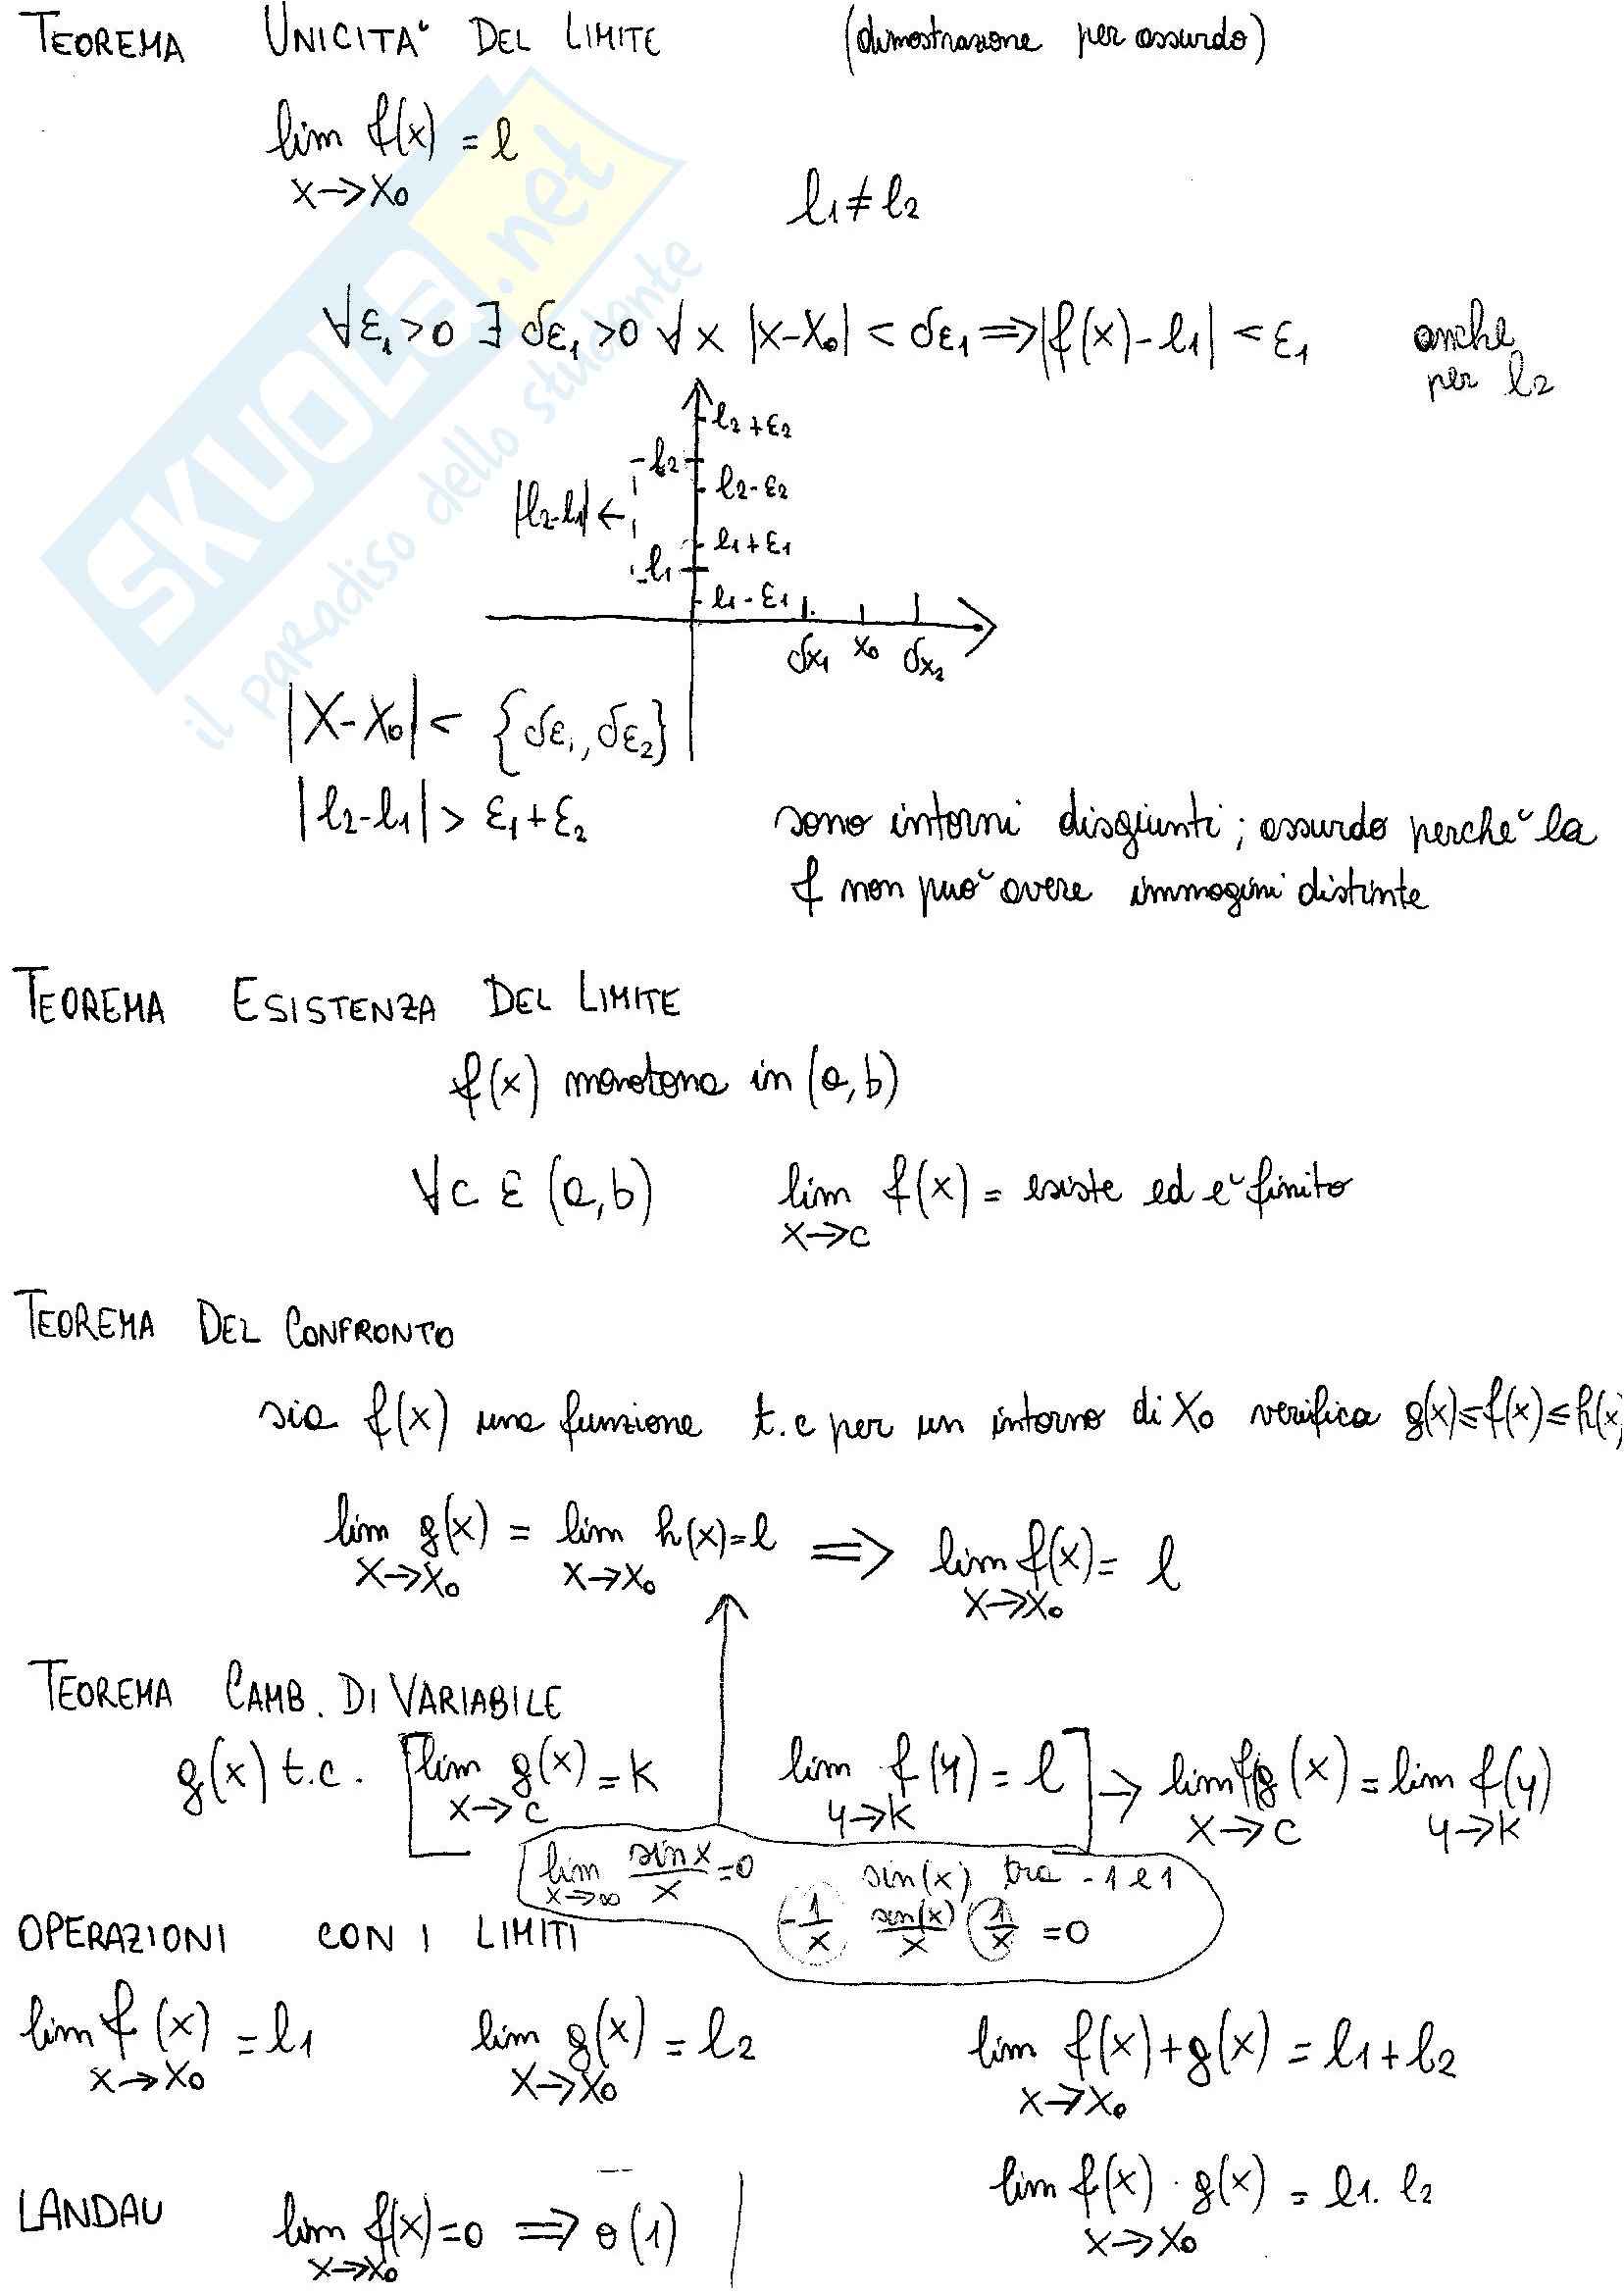 TEOREMA UNICITA' DEL LIMITE (dimostrazione per assurdo)
lim f(x) = l
x→x₀
l₁ ≠ l₂
∀ε₁>0 ∃ δε₁>0 ∀x |x-x₀| < δε₁ ⇒ |f(x)-l₁| < ε₁ anche
per l₂
l₂+ε₂
l₂
l₂-ε₂
|l₂-l₁| ←
l₁+ε₁
l₁
l₁-ε₁
δx₁ x₀ δx₂
|x-x₀| < {δε₁, δε₂}
|l₂-l₁| > ε₁+ε₂ sono intorni disgiunti; assurdo perche' la
f non puo' avere immagini distinte
TEOREMA ESISTENZA DEL LIMITE
f(x) monotona in (a,b)
∀c ε (a,b) lim f(x) = esiste ed e' finito
x→c
TEOREMA DEL CONFRONTO
sia f(x) una funzione t.c per un intorno di x₀ verifica g(x)≤f(x)≤h(x)
lim g(x) = lim h(x)=l ⇒ lim f(x) = l
x→x₀ x→x₀ x→x₀
TEOREMA CAMB. DI VARIABILE
g(x) t.c. [lim g(x) = k lim f(y) = l] → lim f(g(x) = lim f(y)
x→c y→k x→c y→k
lim sinx/x = 0 sin(x) tra -1 e 1
x→∞
-1/x sen(x)/x 1/x = 0
OPERAZIONI CON I LIMITI
lim f(x) = l₁ lim g(x) = l₂ lim f(x)+g(x) = l₁+l₂
x→x₀ x→x₀ x→x₀
LANDAU lim f(x)=0 ⇒ o(1) lim f(x)·g(x) = l₁·l₂
x→x₀ x→x₀
SKUOLA.net
il paradiso dello studente